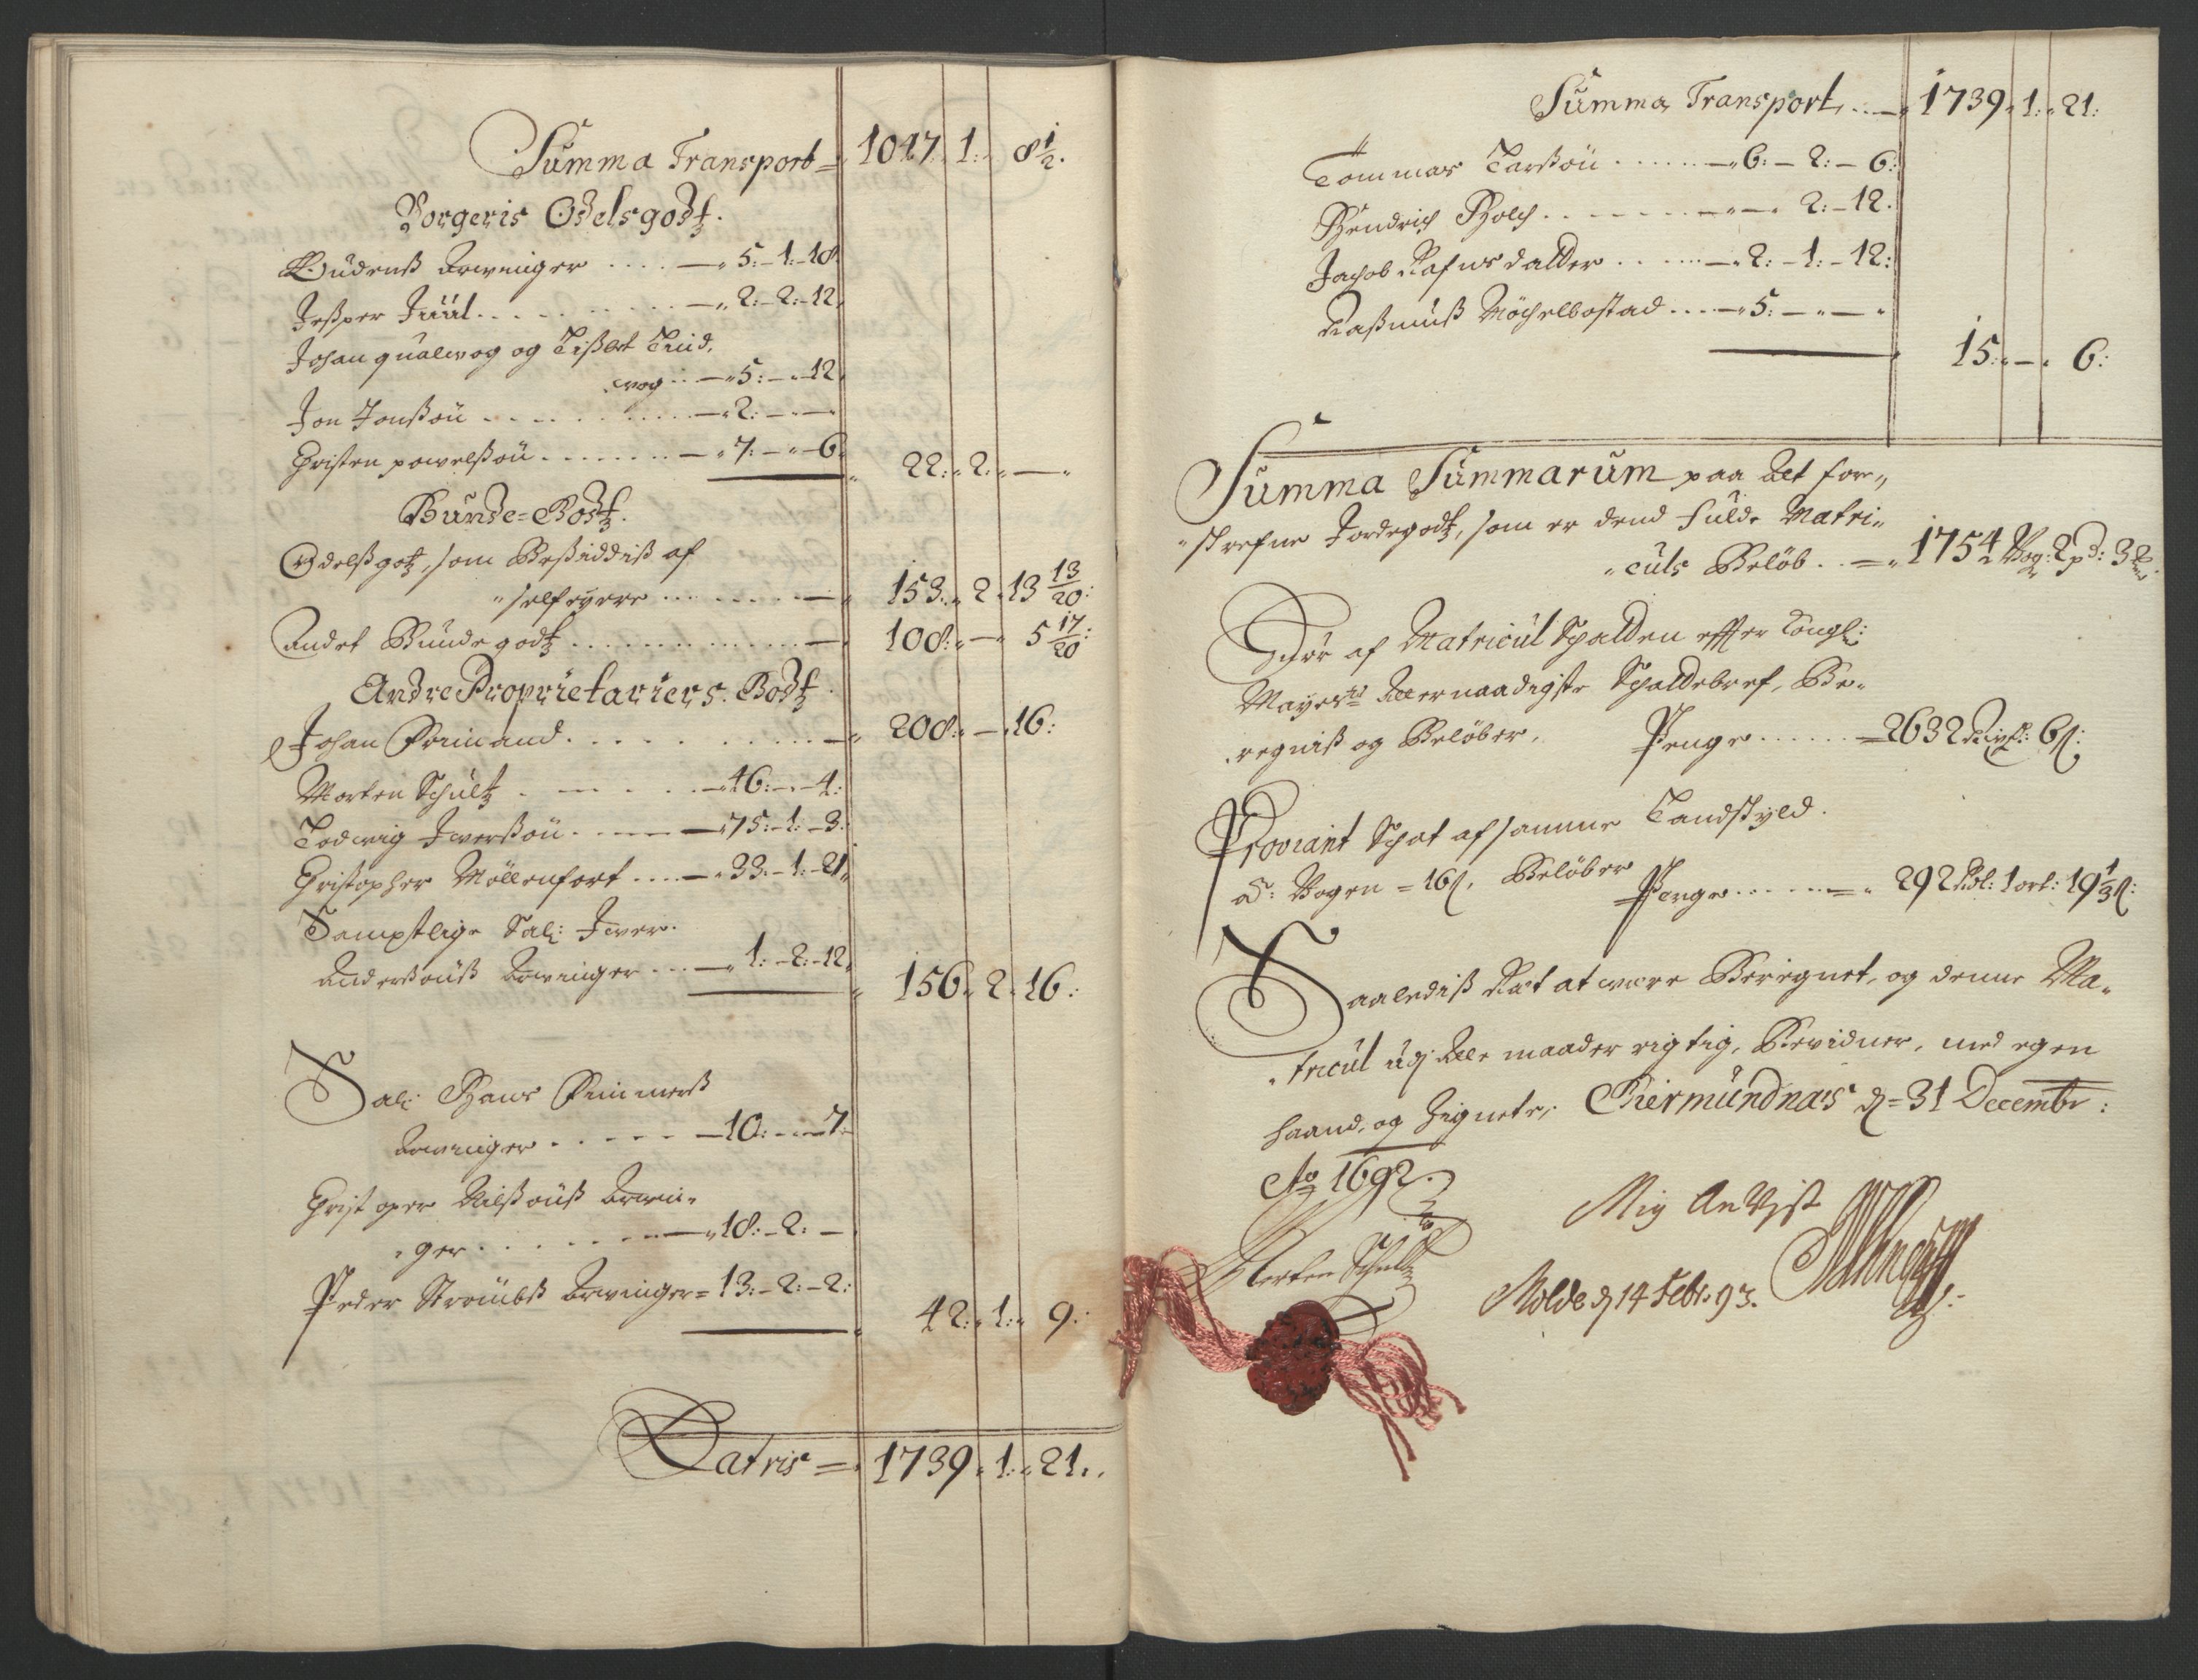 Summa Transport = 1047. 1. 8 1/2.
Borgeris Odelsgodtz.
Oudenß Arvinger .... — 5:–1:–18
Jeßper Juul . . . . . — 2:–2:–12.
Johan qualwog og Lißbet
wog .. — 5:– – 12
Jon Jonßøn . . . . . — 2:– – —
Christen powelßøn . . . . . — 7:– – 6. 22: 2: —
Bunde=Godtz.
Odelßgotz, som Beßiddiß af
self eyere . . . . . — 153. 2. 13 13/20:
Andet Bundegodtz . . . . . — 108: — 5 17/20:
Andre Proprietariers. Godtz.
Johan . . . . . — 208: — 16:
Morten Schultz . — . . — 46:– – 4:
Lodwig Iwerßøn . — — 75:–1:–3:
Christopher Möllenfort ... — 33:–1:–21.
Samptlige Sal: Iwer.
Anderßønß Arvinger ... — 1:–2:–12. 156. 2. 16:
Sal: Hans
Arvinger . . . . . — 10: — 7
Christoper Nilßønß Arvin-
ger . . . . . — 18:–2:–
Peder Strømbß Arvinger = 13:–2:–2: 42: 1: 9.
Latris = 1739. 1: 21.
Summa Transport, .. — 1739. 1: 21:
Tommas Larßøn . . . . . — 6:–2:–6:
Hendrich Holch . . . . . — 2:–12.
Jachob Rafnsdalder . . . . . — 2:–1:–12:
Raßmuß Möchelbostad ... — 5:– – —
15: — 6:
Summa Summarum paa det for-
schrefne Jordegodtz, som er dend fulde Matri-
culs Beløb .. = 1754 Wog: 2 pd: 3
Hvor af Matricul Schatten effter Kongl:
Mayests Allernaadigste Schattebref, Be-
regniß og Beløber, Penge . . . . . = 2632 6 ß:
Proviant Schat af samme Landschyld.
a: Wogen = 16 ß, Beløber Penge . . . . . = 292 Rdl: 1 ort: 19 1/3 ß:
Saalediß Ret at være Beregnet, og denne Ma-
tricul udj Alle maader rigtig, Bevidner, med egen
haand, og Zignete, Giermundnæs d= 31 Decembr:
Ao 1692.
Morten Schultz
Mig Anvist
Molde d 14 Febr: 93.